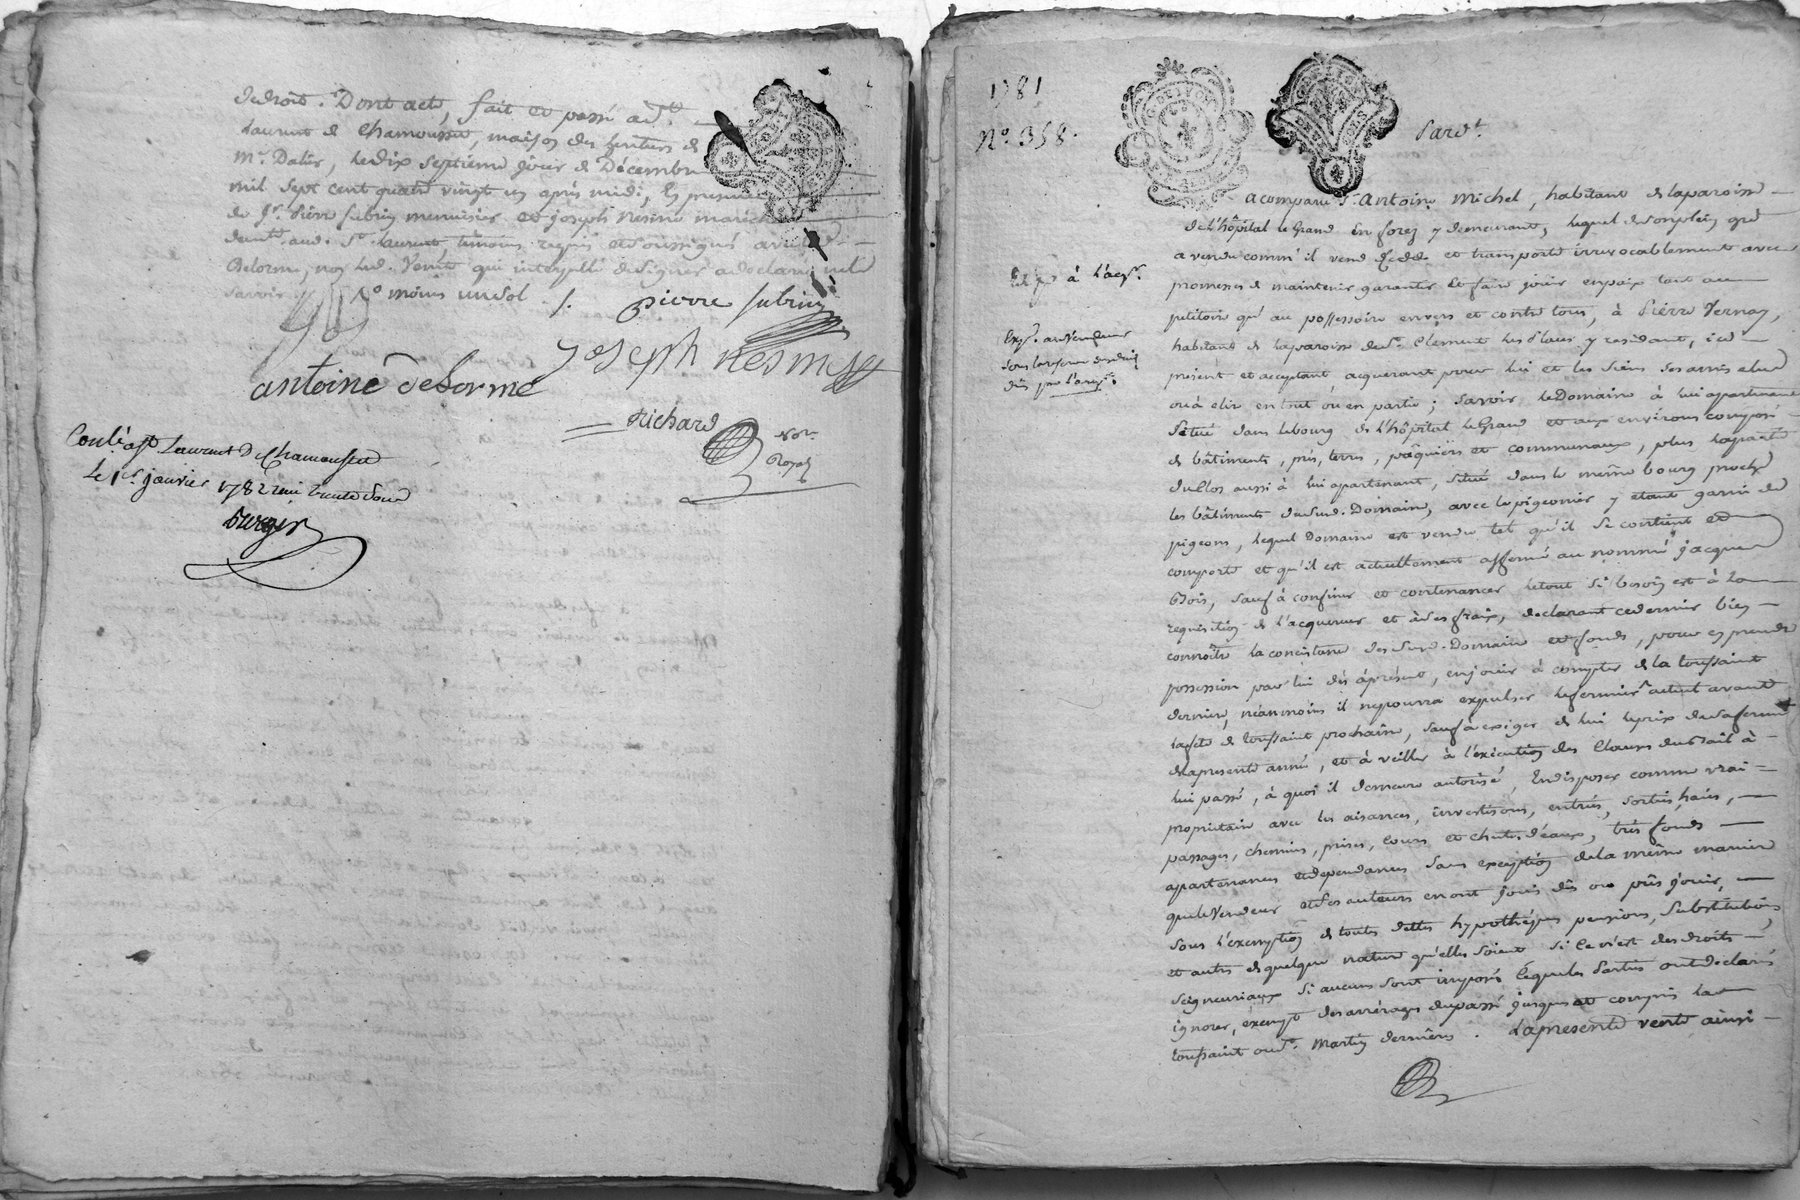 de droit. Dont acte, fait et passé aud.
Laurent de Chamousset, maison des heritiers de
Mr. Dalis, le dix septieme jour de Décembre
mil sept cent quatre vingt un après midi, En presence
de Sr. Pierre Subrin menuisier et joseph Nesme
dem.t aud. St. Laurent, témoins requis et soussignés avec led.
Delorme, non lad. Vente qui interpellé de signer a declaré ne le
savoir
moins un sol ./.
pierre subrin
Joseph Nesme
antoine delorme
Richard
Not.re
Royal
Conlé. a St Laurent D Chamousset
Le 1er janvier 1782 reçu trente sous
1781
N.o 358.
Pard.t
a comparu Sr. Antoine Michel, habitant de la paroisse
de L'hôpital le Grand en forez y demeurant, lequel de son plein gré
a vendu comm' il vend cede et transporte irrevocablement avec
promesses de maintenir garantir et faire jouir en paix tant au
petitoire qu' au possessoire envers et contre tous, à Pierre Vernay,
habitant de la paroisse de St. Clement les Places y residant, ici
présent et acceptant, acquerant pour lui et les siens ses amis elus
ou à elir en tout ou en partie ; savoir, le Domaine à lui apartenant
Situé dans le bourg de L'hôpital le Grand et aux environs composé
de bâtiments, prés, terres, pâquiers et communaux, plus la partie
du Clos aussi à lui apartenant, situé dans le même bourg proche
les bâtiments du susd. Domaine, avec le pigeonier y etant garni de
pigeons, lequel Domaine est vendu tel qu'il se contient et
comporte et qu'il est actuellement affermé au nommé jacques
Bois, sauf à confiner et contenancer le tout si besoin est à la
requisition de l'acquereur et à ses fraix, declarant ce dernier bien
connoître la consistance des susd. Domaine et fonds, pour en prendre
possession par lui dès àprésent, en jouir à compter de la toussaint
derniere, néanmoins il ne pourra expulser le fermier actuel avant
la fête de toussaint prochaine, sauf à exiger de lui le prix de sa ferme
de la presente année, et à veiller à l'exécution des Clauses du Bail à
lui passé, à quoi il demeure autorisé, En disposer comme vrai
propriétaire avec les aisances, investisons, entrées, sorties, haies,
passages, chemins, prises, cours et chute d'eaux, trés fonds
apartenances et dependances sans exception de la même maniere
que le Vendeur et ses auteurs en ont joui dû ou pûs jouir,
sous l'exemption de toutes dettes hypothéques pensions, substitutions
et autres de quelque nature qu'elles soient si ce n'est des droits
seigneuriaux si aucuns sont imposés Lequels Parties ont declarés
ignorer, exempt des arrérages du passé jusques et compris la
toussaint ou St. Martin dernieres. La presente vente ainsi
à l'acq.r
Exp. au Vendeur